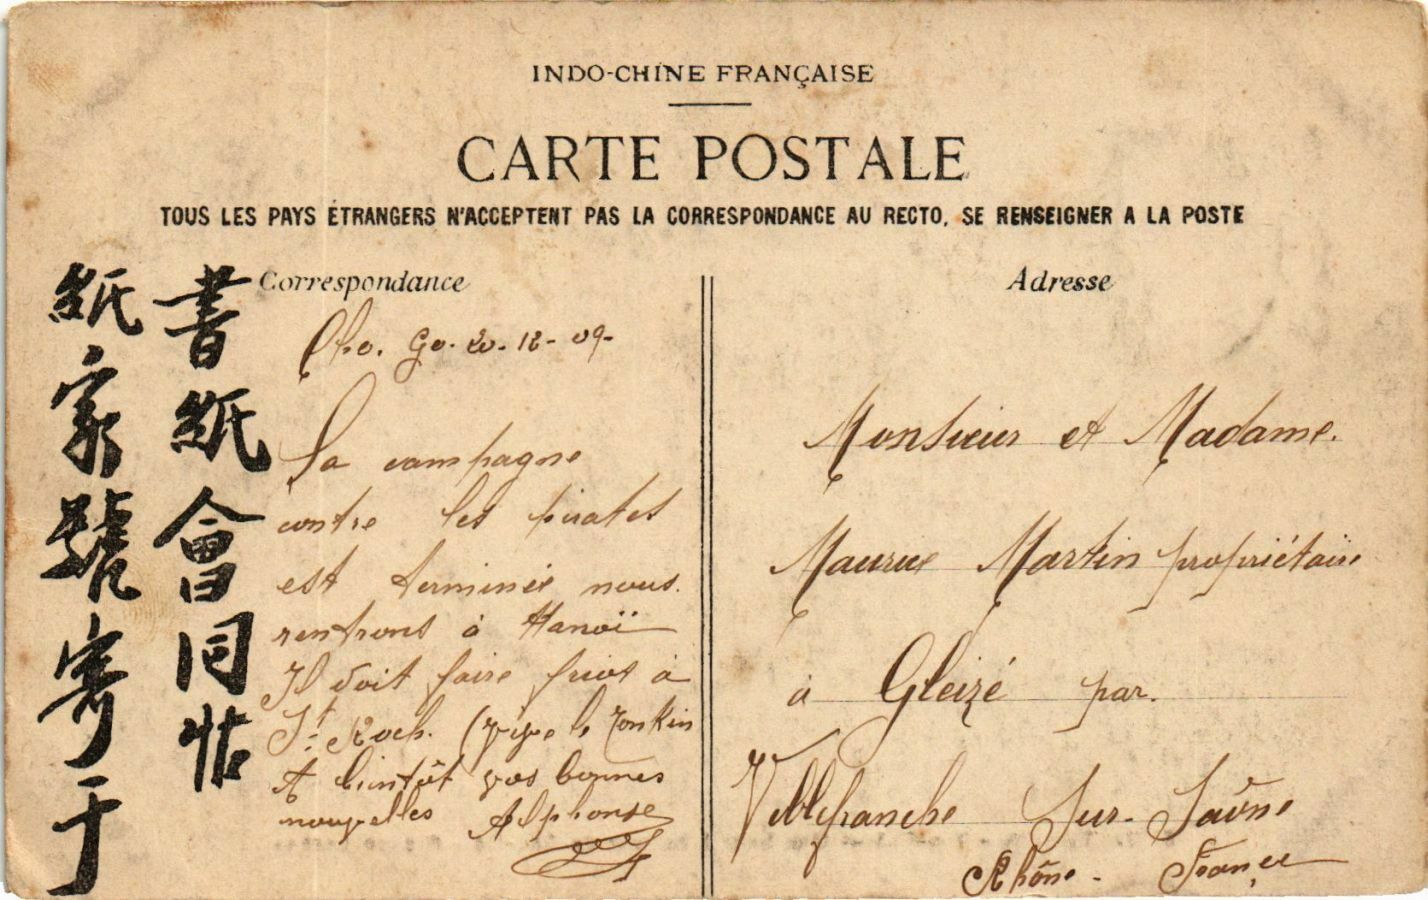 INDO-CHINE FRANÇAISE
CARTE POSTALE
TOUS LES PAYS ÉTRANGERS N'ACCEPTENT PAS LA CORRESPONDANCE AU RECTO, SE RENSEIGNER A LA POSTE
書紙會同帖
紙家號寄于
Correspondance
Pho. Go. 20-12-09-
La campagne
contre les pirates
est terminée nous.
rentrons à Hanoï
Il doit faire froit à
St. Roch. (vive le Tonkin
A bientôt vos bonnes
nouvelles Alphonse
Adresse
Monsieur et Madame.
Maurice Martin propriétaire
à Gleizé par.
Villefranche Sur-Saône
Rhône - France